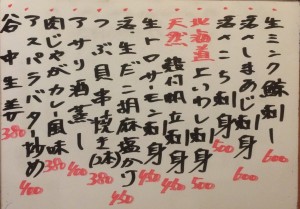 生ミンク鯨刺し 600
活〆しまあじ刺身 600
活〆さごち刺身 500
北海道 上いわし刺身 500
天然 殻付帆立刺身 450
生トロサーモン刺身 450
活〆生だこ胡麻塩かけ 450
つぶ貝串焼き(2本) 380
アサリ酒蒸し 400
肉じゃがカレー風味 380
アスパラバター炒め 400
谷中生姜 380